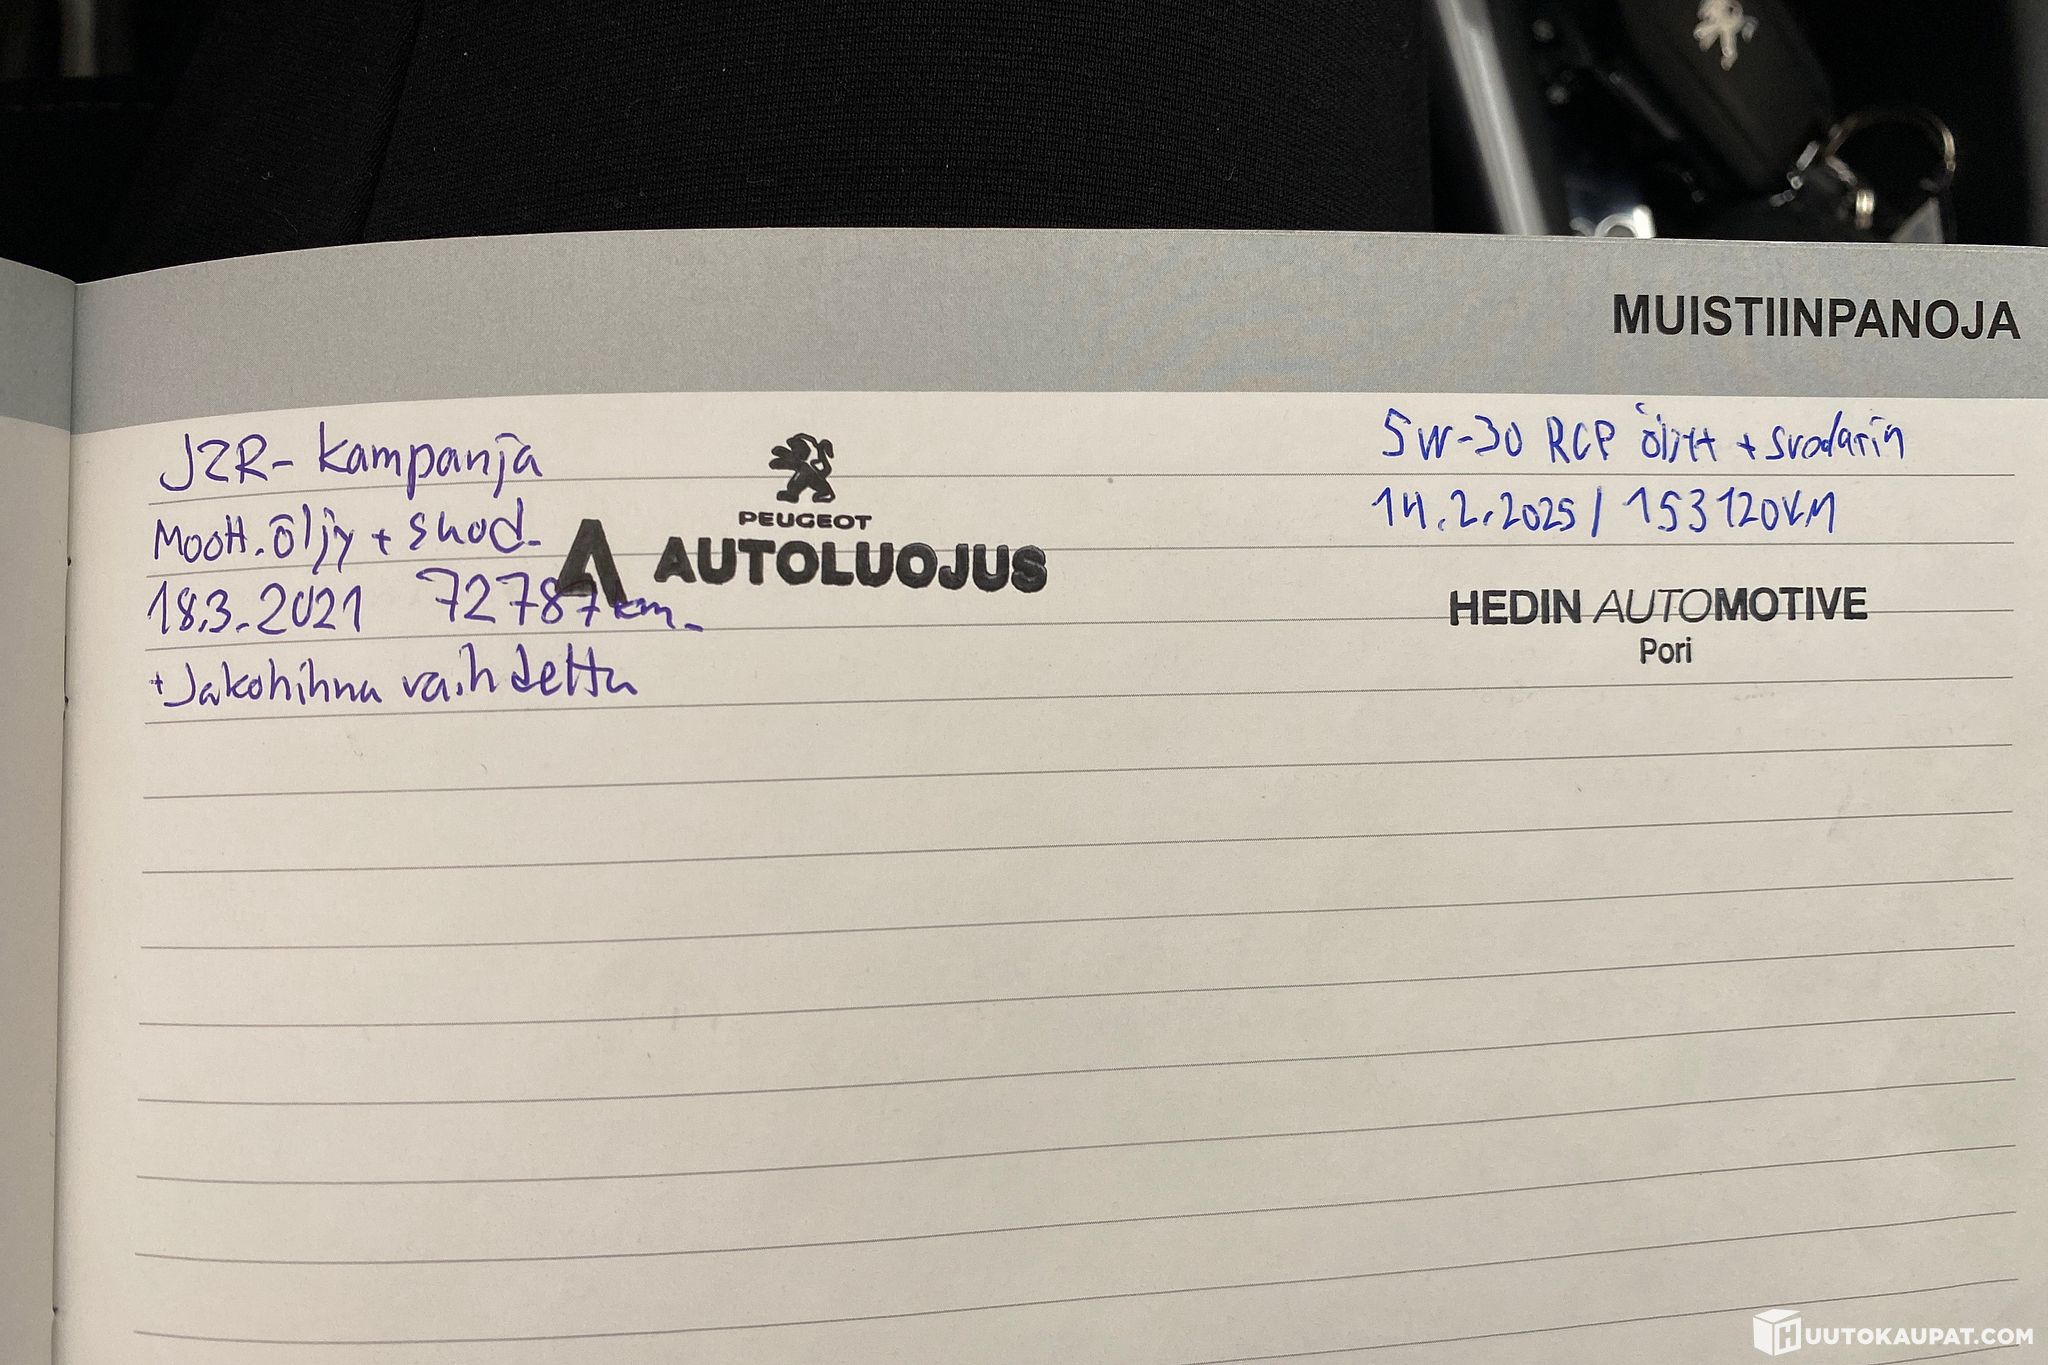 MUISTIINPANOJA
JZR- kampanja
Moott. öljy + suod.
18.3.2021 72787 km.
+ Jakohihna vaihdettu
PEUGEOT
AUTOLUOJUS
5W-30 RCP öljyt + suodatin
14.2.2025 / 153120KM
HEDIN AUTOMOTIVE
Pori
HUUTOKAUPAT.COM